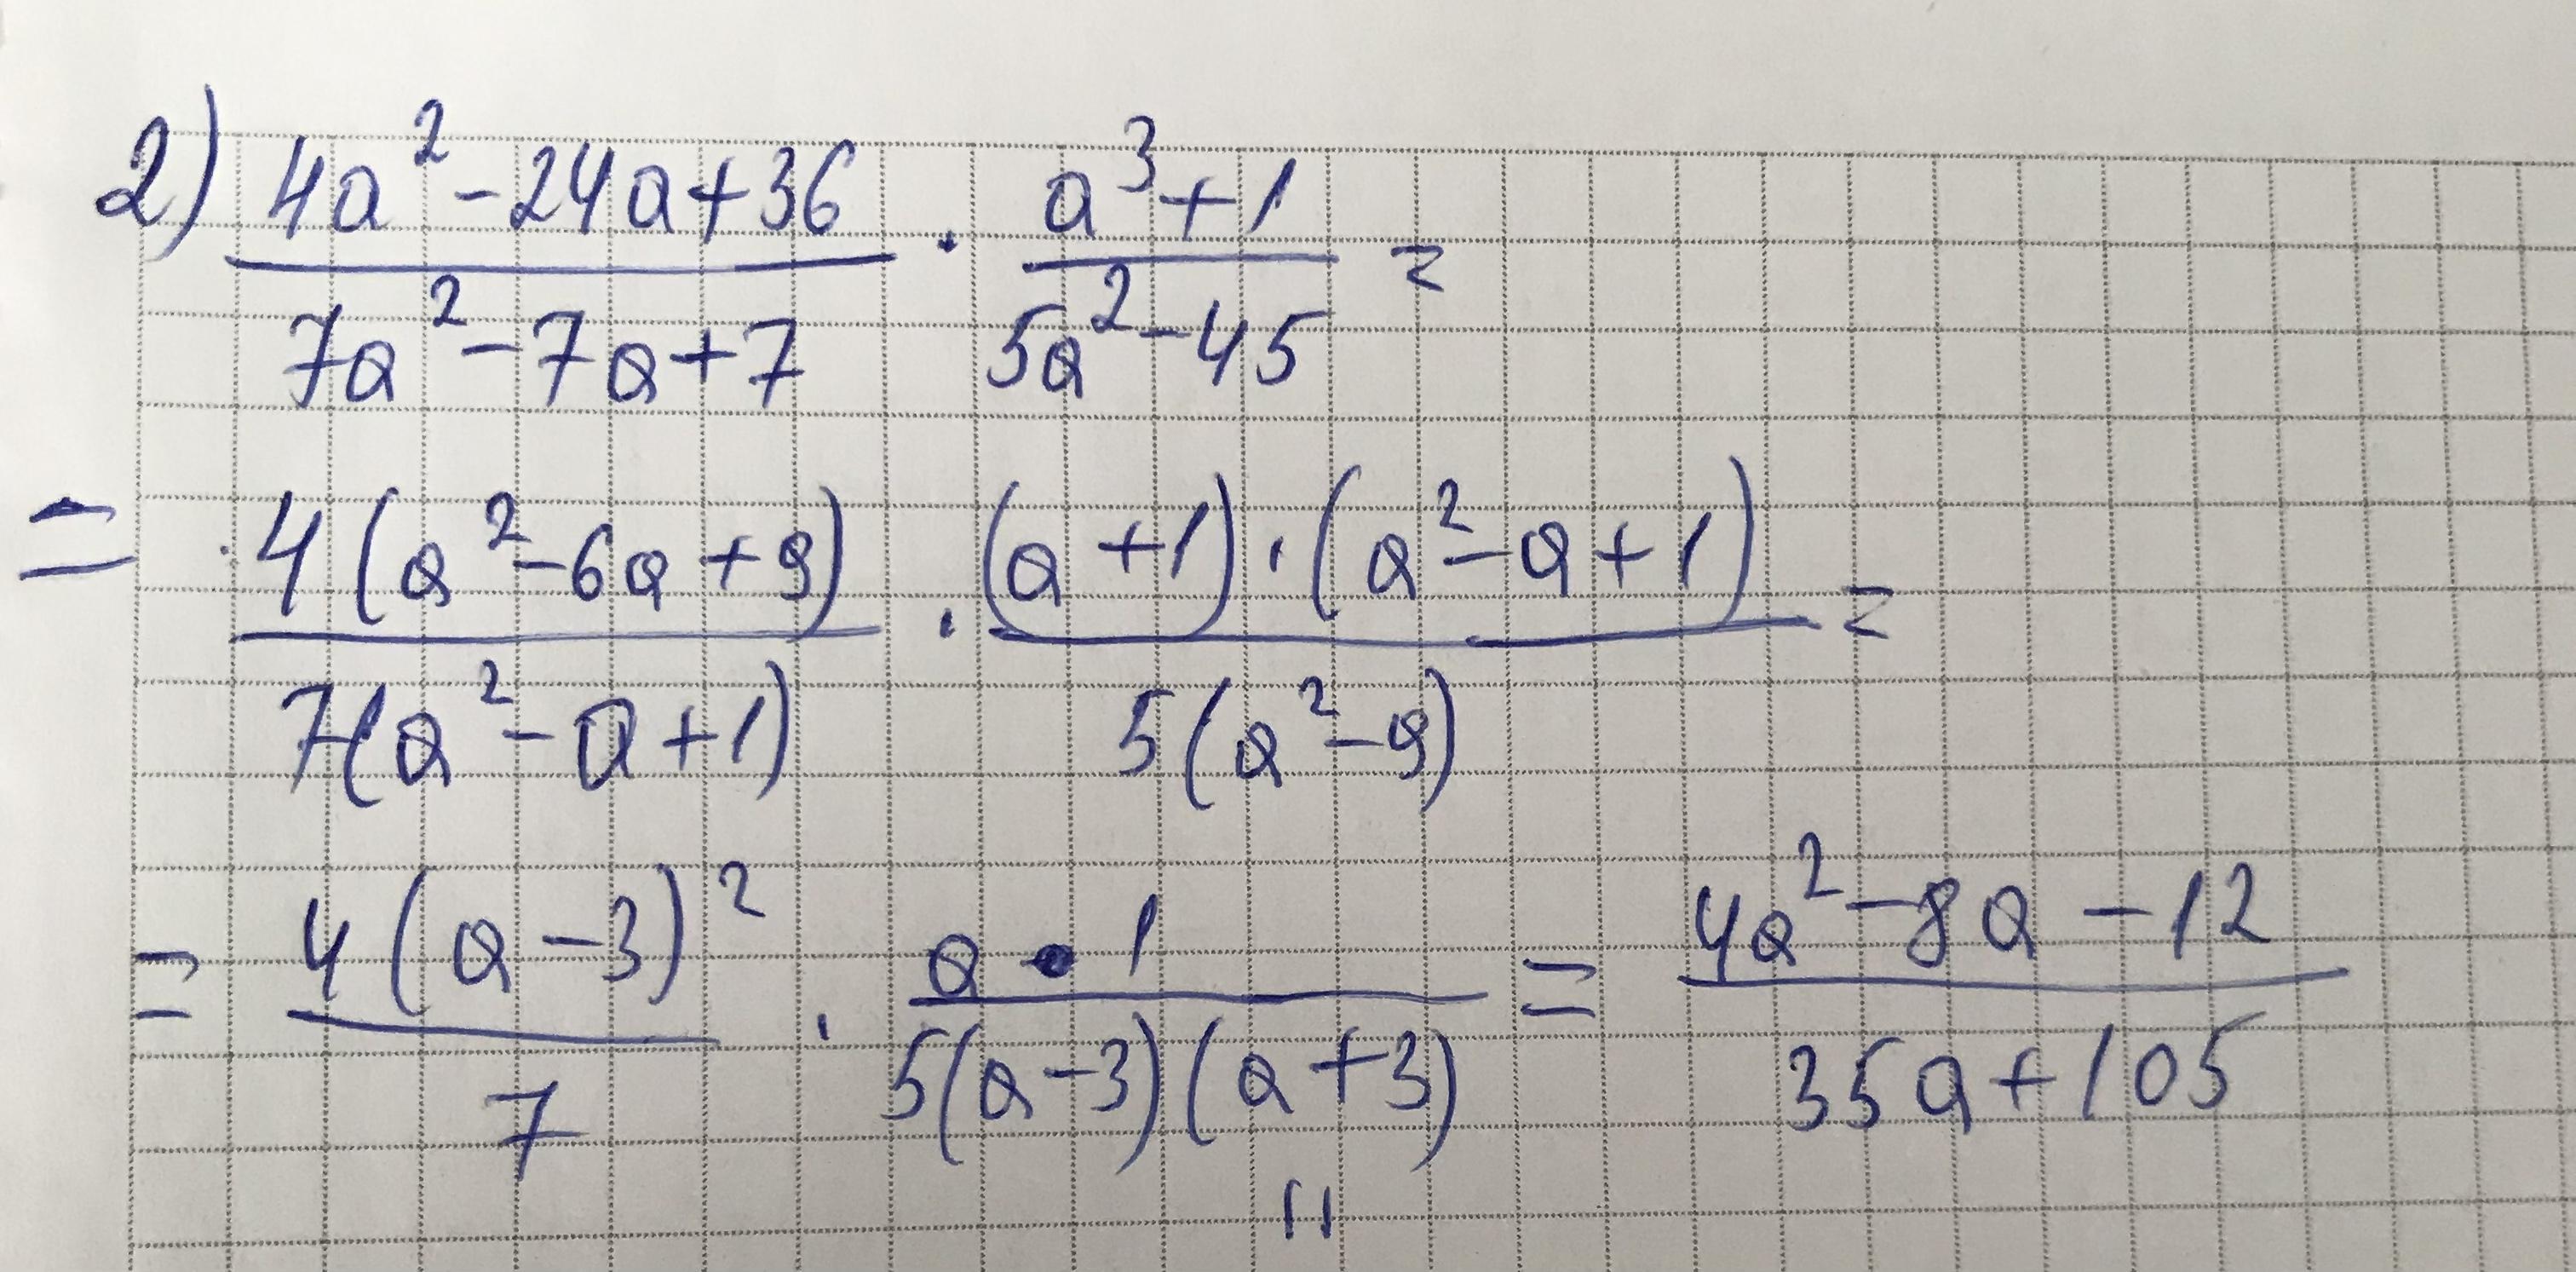 2) (4a² - 24a + 36)/(7a² - 7a + 7) · (a³ + 1)/(5a² - 45) =
= 4(a² - 6a + 9)/7(a² - a + 1) · (a + 1) · (a² - a + 1)/5(a² - 9) =
= 4(a - 3)²/7 · a • 1/5(a - 3)(a + 3) = (4a² - 8a - 12)/(35a + 105)